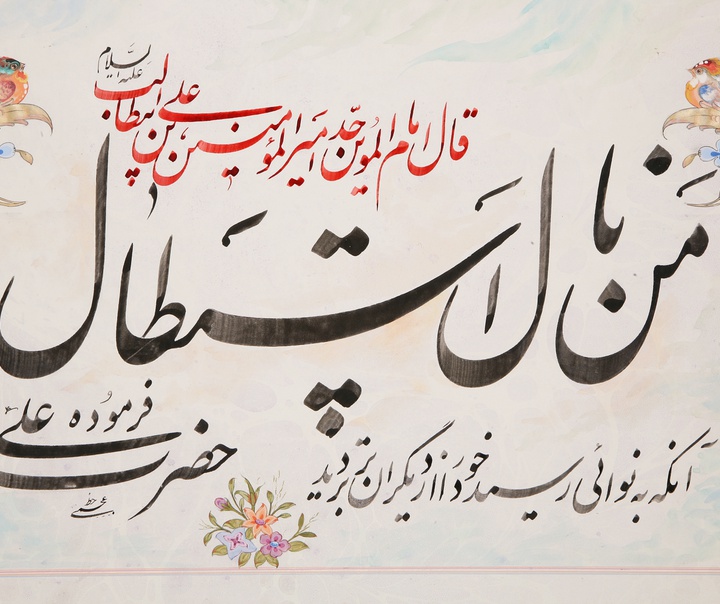 قال امام الموحّدین امیرالمؤمنین علی بن ابیطالب علیه السلام
مَن نال استطال
آنکه به نوائی رسید خود را از دیگران برتر دید
حضرت علی ع فرموُده